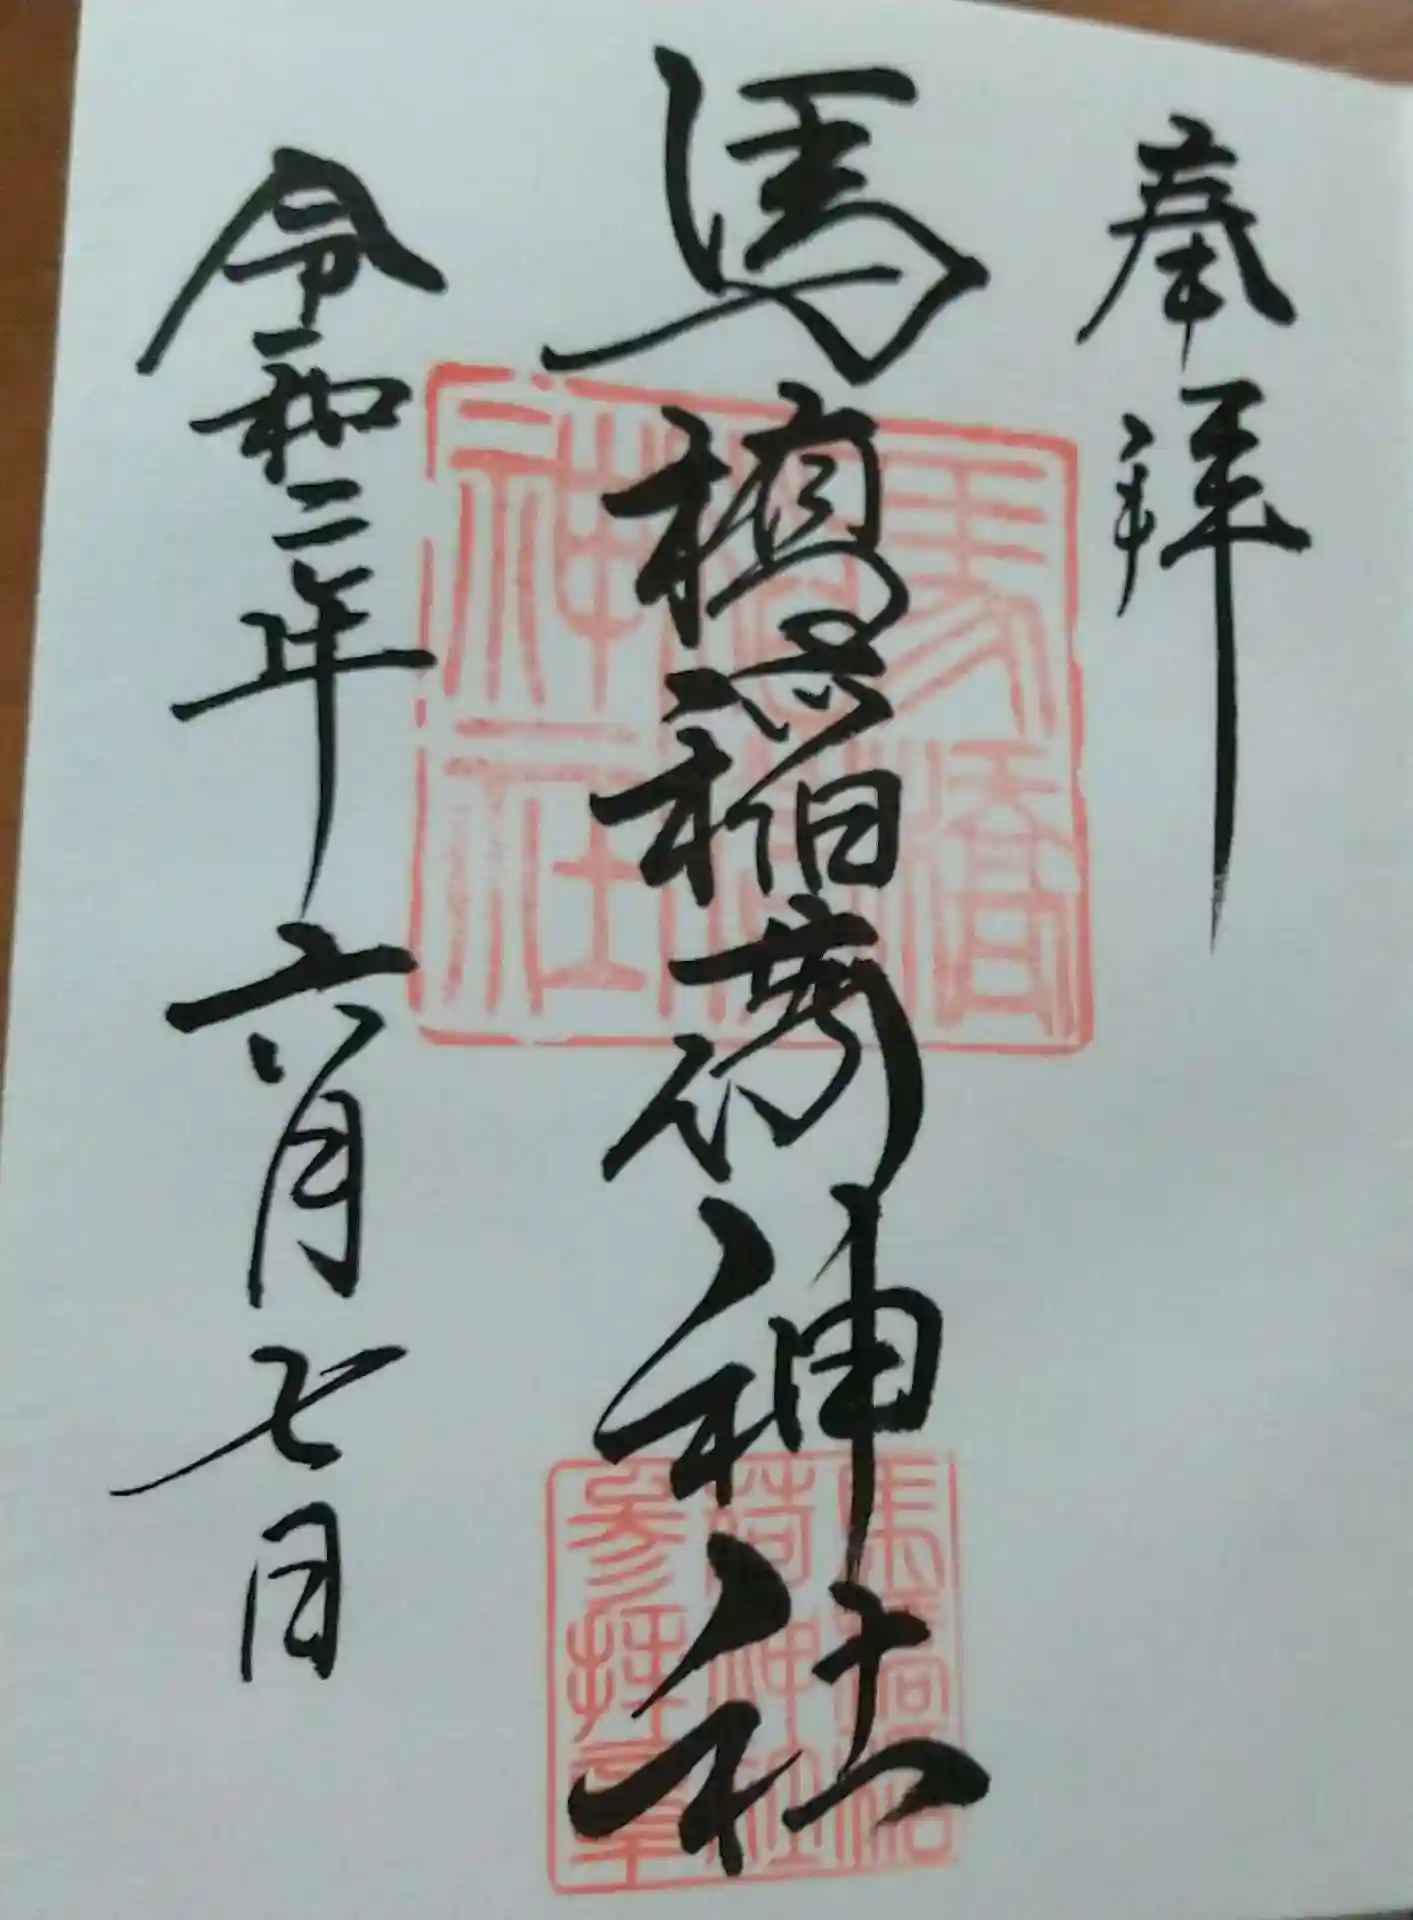 奉拝
馬橋稲荷神社
令和二年六月七日
馬橋稲荷神社
馬橋稲荷神社参拝章